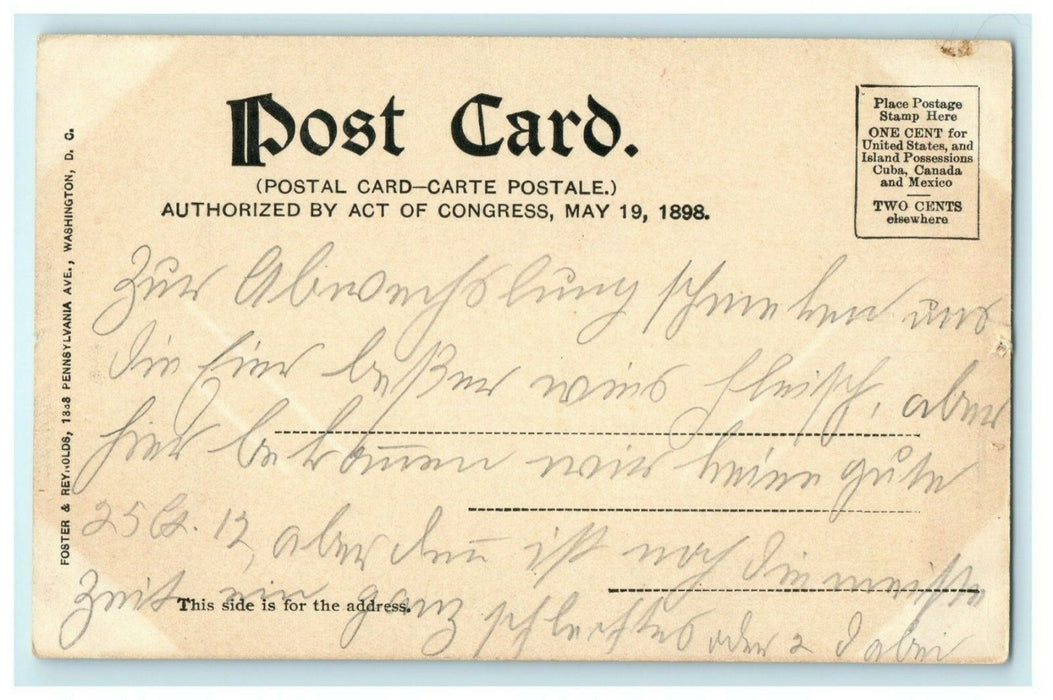 Post Card.
(POSTAL CARD—CARTE POSTALE.)
AUTHORIZED BY ACT OF CONGRESS, MAY 19, 1898.
Place Postage
Stamp Here
ONE CENT for
United States, and
Island Possessions
Cuba, Canada
and Mexico
TWO CENTS
elsewhere
FOSTER & REYNOLDS, PENNSYLVANIA AVE., WASHINGTON, D. C.
Zur Abwechslung schmeken uns
die Eier beßer wies Fleisch, aber
hier bekom̅en wir keine gute
25 Ct. 12, aber den̅ ist noch die meiste
Zeit ein ganz schlechtes oder 2 dabei
This side is for the address.